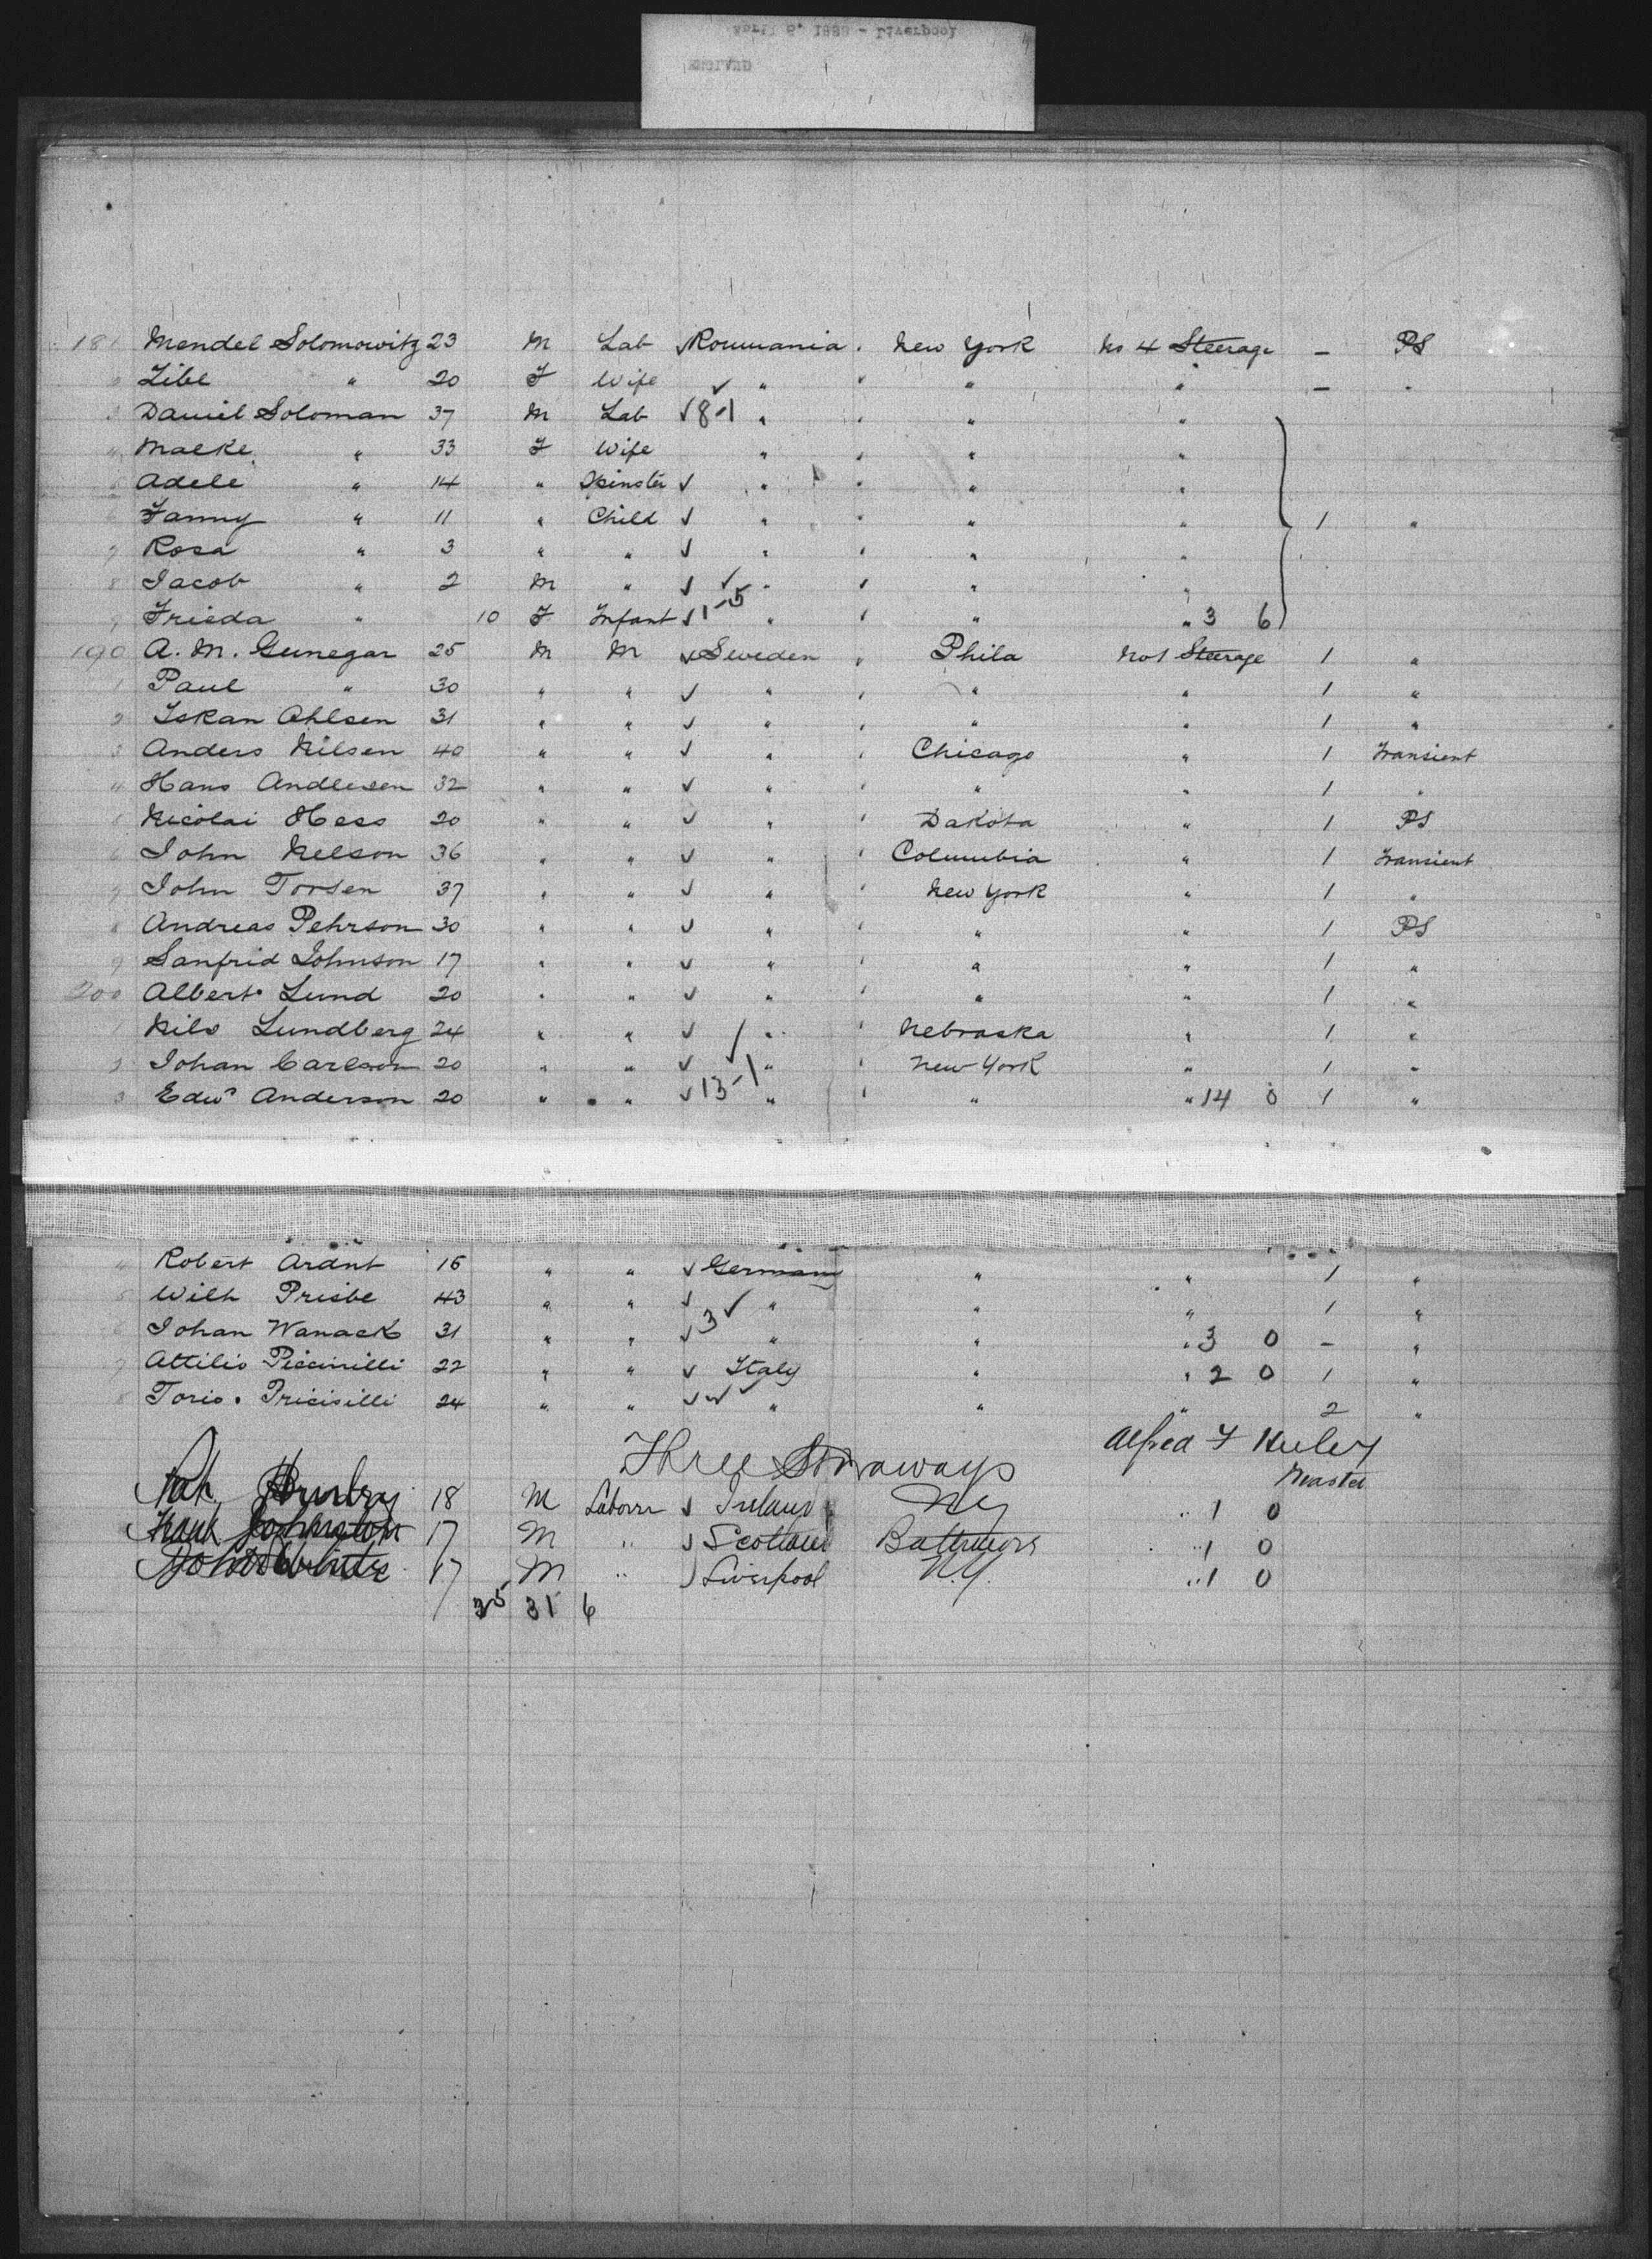 181 Mendel Solomowitz 23 M Lab Roumania New York No 4 Steerage - PS
Zibe " 20 F Wife " " " -
3 Daniel Soloman 37 M Lab 8-1 " " "
4 Malke " 33 F Wife " " "
5 Adele " 14 " Spinster " " "
6 Fanny " 11 " Child " " " 1 "
7 Rosa " 3 " " " " "
8 Jacob " 2 M " " " "
9 Frieda " 10 F Infant 1-5 " " " 3 6
190 A. M. Gunegar 25 M M Sweden Phila No 1 Steerage 1 "
1 Paul " 30 " " " " " 1 "
2 Iskan Ohlsen 31 " " " " " 1 "
3 Anders Nilsen 40 " " " Chicago " 1 Transient
4 Hans 32 " " " " " 1 "
5 Nicolai Hess 20 " " " Dakota " 1 PS
6 John Nelson 36 " " " Columbia " 1 Transient
7 John Torsen 37 " " " New York " 1 "
8 Andreas Pehrson 30 " " " " " 1 PS
9 Sanfrid Johnson 17 " " " " " 1 "
200 Albert Lund 20 " " " " " 1 "
1 Nils Lundberg 24 " " " Nebraska " 1 "
2 Johan Carlson 20 " " " New York " 1 "
3 Edwd Anderson 20 " " 13-1 " " " 14 0 1 "
4 Robert Ardnt 15 " " Germany " " 1 "
5 Wilh Prisbe 43 " " " " " 1 "
6 Johan Wanack 31 " " 3 " " " 3 0 - "
7 Attilio Piccinilli 22 " " Italy " " 2 0 1 "
8 Torio Pricisilli 24 " " " " " 2 "
Alfred F
Master
Three Stowaways
18 M Laborer Ireland NY " 1 0
Frank Johnston 17 M " Scotland Baltimore " 1 0
17 M " Liverpool N.Y. " 1 0
35 31 6